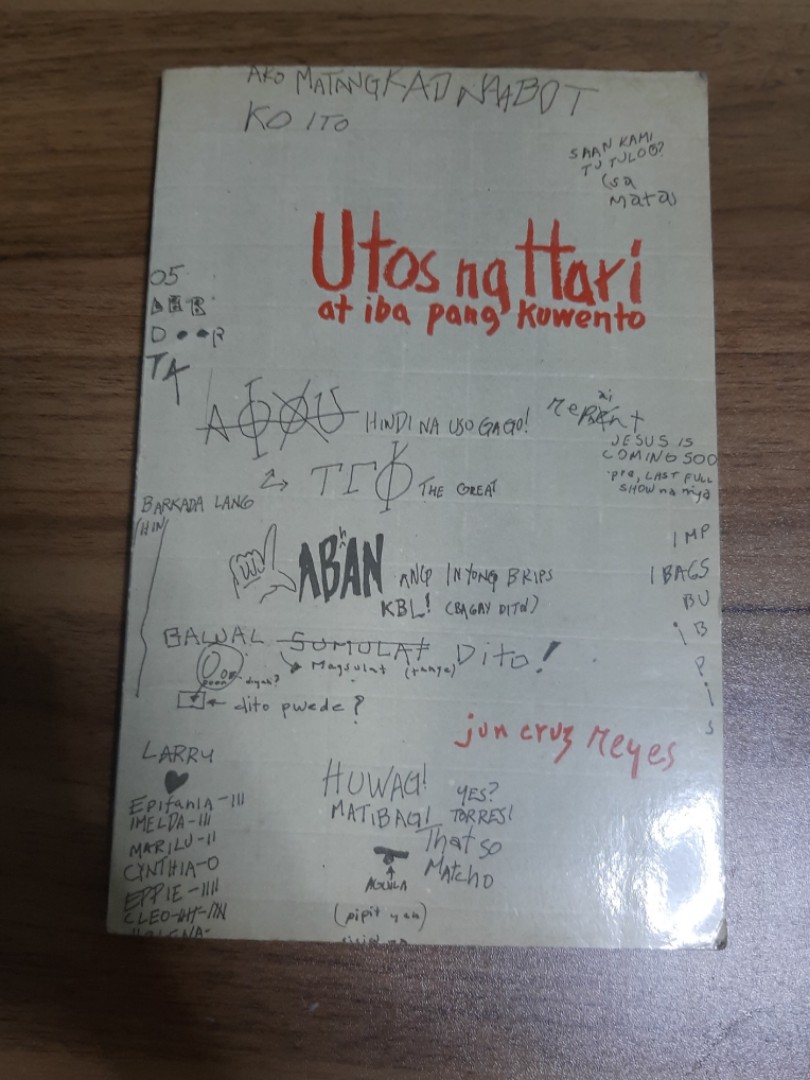 AKO MATANGKAD NAABOT
KO ITO
SAAN KAMI
TUTULOG?
(sa
mata)
Utos ng Hari
at iba pang kuwento
05
TA
ΑΦΧΩ HINDI NA USO GAGO!
repent
JESUS IS
COMING SOO
pre, LAST FULL
SHOW na niya
ΤΓΦ THE GREAT
BARKADA LANG
LABAN
ANG INYONG BRIPS
KBL! (BAGAY DITO)
IMP
IBAGS
BU
iB
P
i
s
BAWAL SUMULAT Dito!
Magsulat (tanga)
dito pwede?
jun cruz reyes
LARRY
Epifania-III
IMELDA-III
MARILU-II
CYNTHIA-0
EPPIE-IIII
CLEO
HUWAG!
MATIBAG!
YES?
TORRES!
That so
Matcho
AGUILA
(pipit yan)